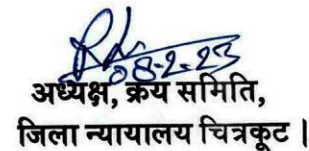 08-2-23
अध्यक्ष, क्रय समिति,
जिला न्यायालय चित्रकूट |